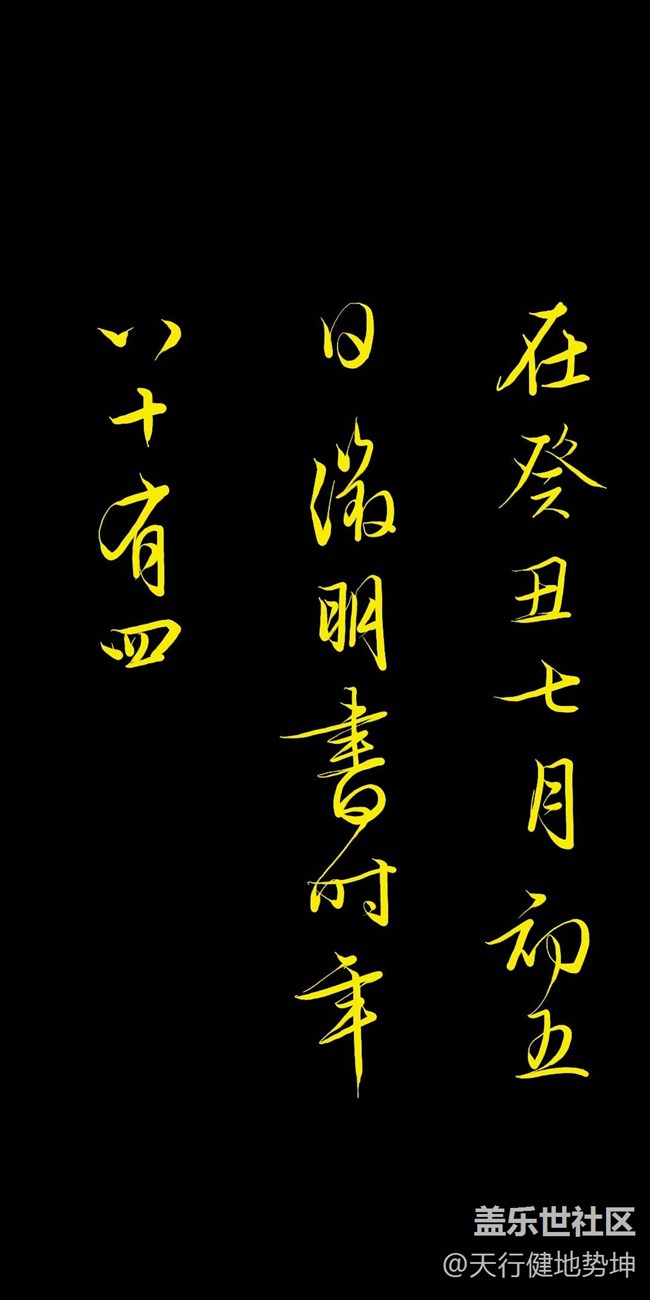 在癸丑七月初五
日徵明書时年
八十有四
盖乐世社区
@天行健地势坤